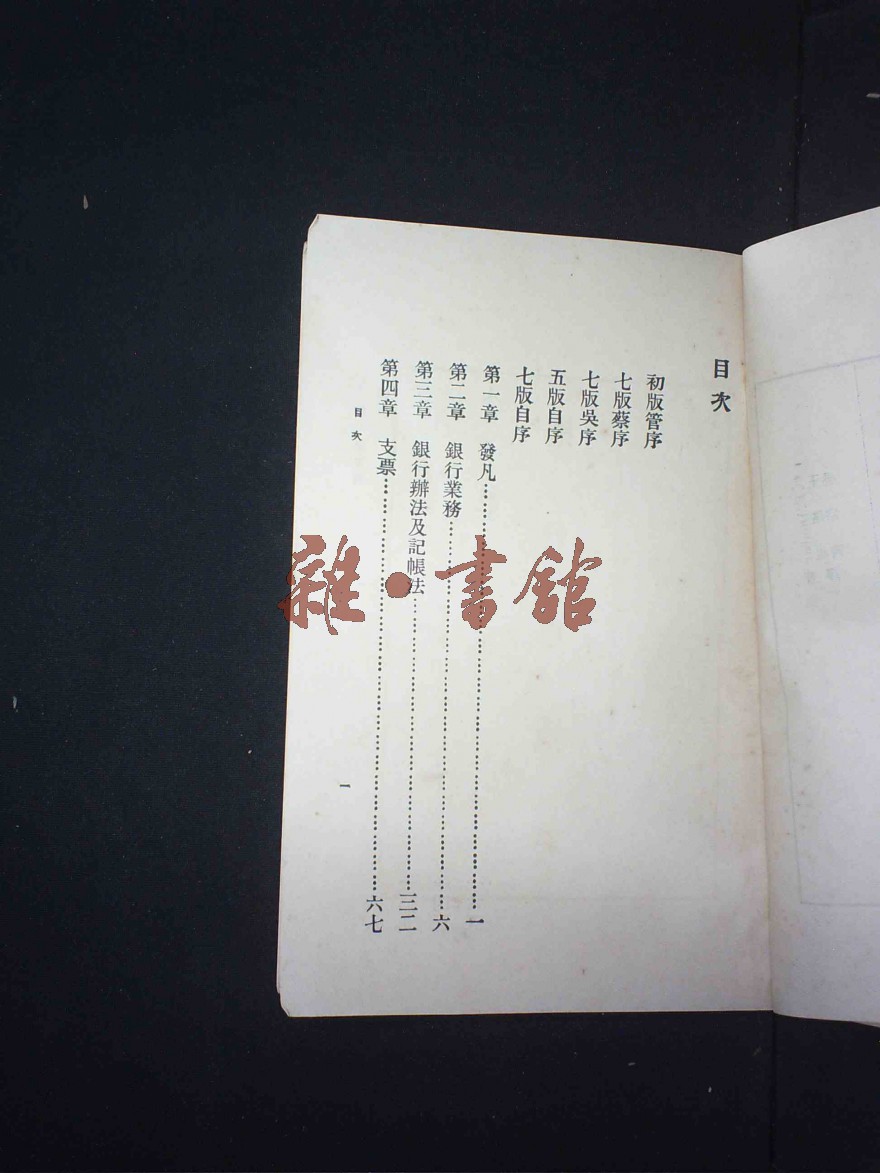 目次
初版管序
七版蔡序
七版吳序
五版自序
七版自序
第一章 發凡……一
第二章 銀行業務……六
第三章 銀行辦法及記帳法……三二
第四章 支票……六七
目次
一
雜·書館